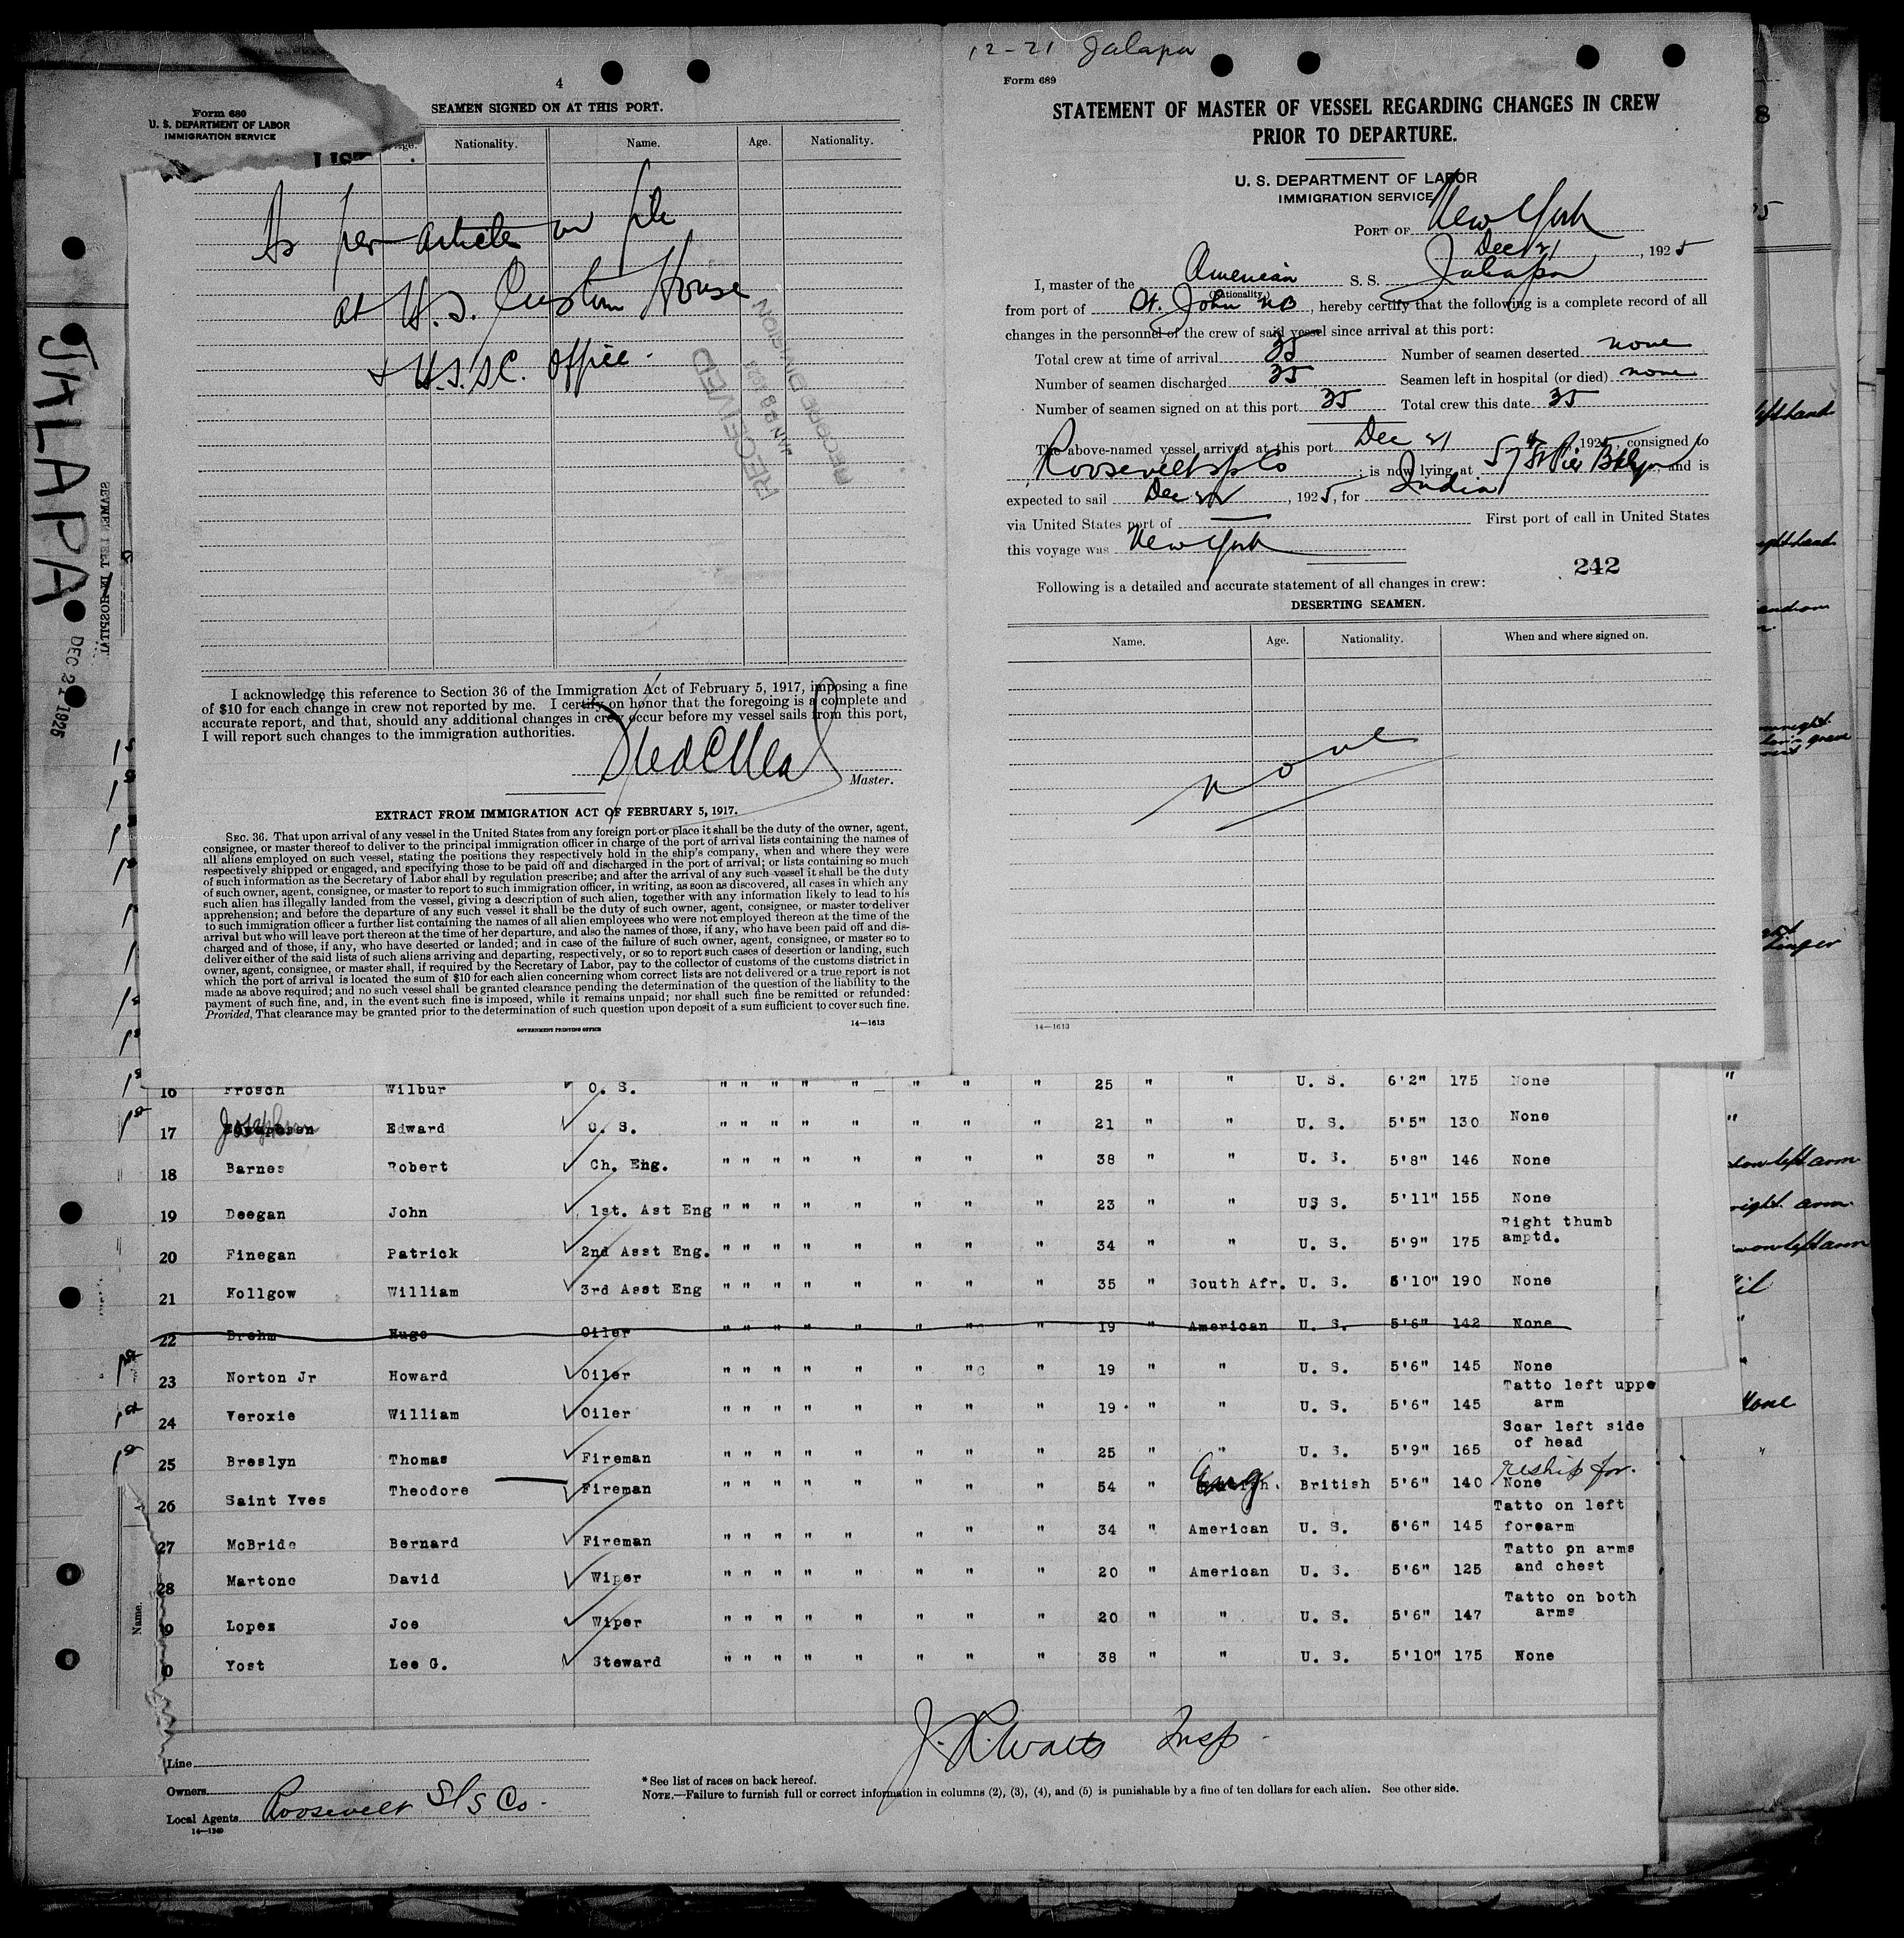 12-21 Jalapa
4
Form 680
U. S. DEPARTMENT OF LABOR
IMMIGRATION SERVICE
LIST
SEAMEN SIGNED ON AT THIS PORT.
Age. Nationality. Name. Age. Nationality.
As per article on file
at U.S. Custom House
& U.S.S.C. Office.
RECEIVED
RECORD DIVISION
I acknowledge this reference to Section 36 of the Immigration Act of February 5, 1917, imposing a fine
of $10 for each change in crew not reported by me. I certify on honor that the foregoing is a complete and
accurate report, and that, should any additional changes in crew occur before my vessel sails from this port,
I will report such changes to the immigration authorities.
Master.
EXTRACT FROM IMMIGRATION ACT OF FEBRUARY 5, 1917.
SEC. 36. That upon arrival of any vessel in the United States from any foreign port or place it shall be the duty of the owner, agent,
consignee, or master thereof to deliver to the principal immigration officer in charge of the port of arrival lists containing the names of
all aliens employed on such vessel, stating the positions they respectively hold in the ship's company, when and where they were
respectively shipped or engaged, and specifying those to be paid off and discharged in the port of arrival; or lists containing so much
of such information as the Secretary of Labor shall by regulation prescribe; and after the arrival of any such vessel it shall be the duty
of such owner, agent, consignee, or master to report to such immigration officer, in writing, as soon as discovered, all cases in which any
such alien has illegally landed from the vessel, giving a description of such alien, together with any information likely to lead to his
apprehension; and before the departure of any such vessel it shall be the duty of such owner, agent, consignee, or master to deliver
to such immigration officer a further list containing the names of all alien employees who were not employed thereon at the time of the
arrival but who will leave port thereon at the time of her departure, and also the names of those, if any, who have been paid off and dis-
charged and of those, if any, who have deserted or landed; and in case of the failure of such owner, agent, consignee, or master so to
deliver either of the said lists of such aliens arriving and departing, respectively, or so to report such cases of desertion or landing, such
owner, agent, consignee, or master shall, if required by the Secretary of Labor, pay to the collector of customs of the customs district in
which the port of arrival is located the sum of $10 for each alien concerning whom correct lists are not delivered or a true report is not
made as above required; and no such vessel shall be granted clearance pending the determination of the question of the liability to the
payment of such fine, and, in the event such fine is imposed, while it remains unpaid; nor shall such fine be remitted or refunded:
Provided, That clearance may be granted prior to the determination of such question upon deposit of a sum sufficient to cover such fine.
GOVERNMENT PRINTING OFFICE
14—1613
Form 689
STATEMENT OF MASTER OF VESSEL REGARDING CHANGES IN CREW
PRIOR TO DEPARTURE.
U. S. DEPARTMENT OF LABOR
IMMIGRATION SERVICE
PORT OF New York
Dec 21, 1925
I, master of the American S. S. Jalapa
(Nationality.)
from port of St. John NB, hereby certify that the following is a complete record of all
changes in the personnel of the crew of said vessel since arrival at this port:
Total crew at time of arrival 35 Number of seamen deserted none
Number of seamen discharged 35 Seamen left in hospital (or died) none
Number of seamen signed on at this port 35 Total crew this date 35
The above-named vessel arrived at this port Dec 21, 1925, consigned to
Roosevelt SS Co; is now lying at 57 St Pier Bklyn and is
expected to sail Dec 22, 1925, for India
via United States port of — First port of call in United States
this voyage was New York
242
Following is a detailed and accurate statement of all changes in crew:
DESERTING SEAMEN.
Name. Age. Nationality. When and where signed on.
None
14—1613
JALAPA
DEC 21 1925
SEAMEN LEFT IN HOSPITAL
16 Frosch Wilbur O. S. " " " " " " " " 25 " " U. S. 6'2" 175 None
17 Josephson Edward O. S. " " " " " " " " 21 " " U. S. 5'5" 130 None
18 Barnes Robert Ch. Eng. " " " " " " " " 38 " " U. S. 5'8" 146 None
19 Deegan John 1st. Ast Eng " " " " " " " " 23 " " US S. 5'11" 155 None
20 Finegan Patrick 2nd Asst Eng. " " " " " " " " 34 " " U. S. 5'9" 175 Right thumb amptd.
21 Kollgow William 3rd Asst Eng " " " " " " " " 35 " South Afr. U. S. 5'10" 190 None
22 Drehm Hugo Oiler " " " " " " " " 19 " American U. S. 5'6" 142 None
23 Norton Jr Howard Oiler " " " " " " " " 19 " " U. S. 5'6" 145 None
24 Veroxie William Oiler " " " " " " " " 19 " " U. S. 5'6" 145 Tatto left uppe arm
25 Breslyn Thomas Fireman " " " " " " " " 25 " " U. S. 5'9" 165 Scar left side of head
26 Saint Yves Theodore Fireman " " " " " " " " 54 " Eng British 5'6" 140 None reship for.
27 McBride Bernard Fireman " " " " " " " " 34 " American U. S. 5'6" 145 Tatto on left forearm
28 Martone David Wiper " " " " " " " " 20 " American U. S. 5'6" 125 Tatto on arms and chest
9 Lopez Joe Wiper " " " " " " " " 20 " " U. S. 5'6" 147 Tatto on both arms
0 Yost Lee G. Steward " " " " " " " " 38 " " U. S. 5'10" 175 None
Name.
J. R. Watts Insp.
Line
Owners
Local Agents Roosevelt S/S Co.
14—1240
* See list of races on back hereof.
NOTE.—Failure to furnish full or correct information in columns (2), (3), (4), and (5) is punishable by a fine of ten dollars for each alien. See other side.